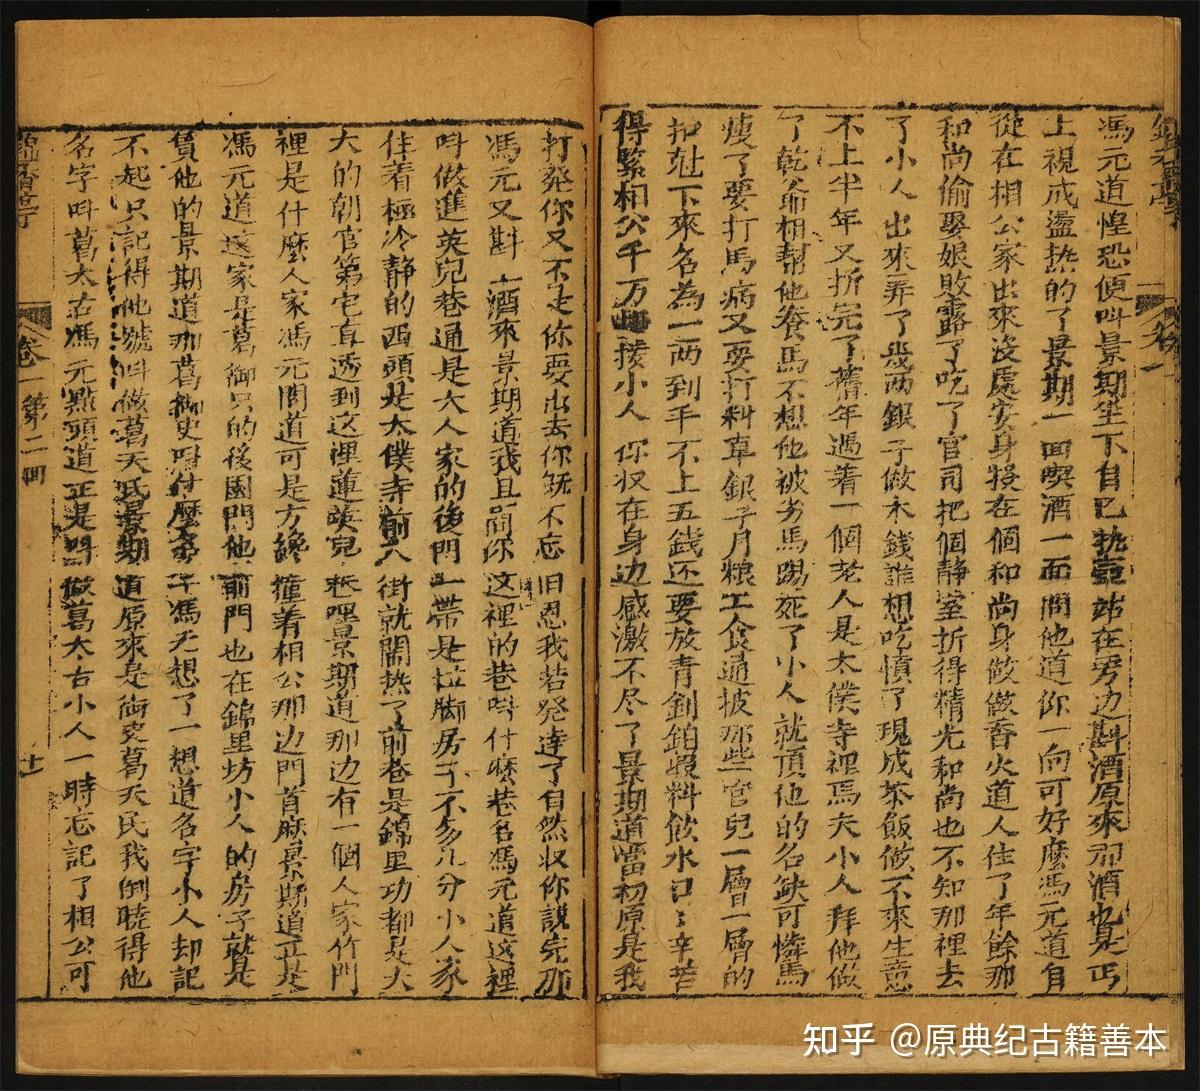 馮元道惶恐便叫景期坐下自己執壺站在旁边斟酒原來那酒也是丐
上視成盪热的了景期一面喫酒一面問他道你一向可好麼馮元道自
從在相公家出來沒處安身投在個和尚身做做香火道人住了年餘那
和尚偷娶娘敗露了吃了官司把個静室折得精光和尚也不知那裡去
了小人出來弄了幾両銀子做木錢誰想吃慣了現成茶飯做不來生意
不上半年又折完了舊年遇着一個老人是太僕寺裡馬夫小人拜他做
了乾爺相幫他養馬不想他被劣馬踢死了小人就頂他的名缺可憐馬
瘦了要打馬病又要打料草銀子月粮工食通被那些官兒一層一層的
扣尅下來名為一両到手不上五錢还要放青釗鉑喂料飲水日：辛苦
得緊相公千万提㧞小人你収在身边感激不尽了景期道當初原是我
打発你又不是你要出去你旣不忘旧恩我若発達了自然収你說完那
馮元又斟上酒來景期道我且問你这裡的巷呌什麽巷名馮元道这裡
呌做進英兒巷通是大人家的後門一帶是拉脚房子不多几分小人家
住着極冷静的西頭是太僕寺前大街就閙热了前巷是錦里坊都是大
大的朝官第宅直透到这裡蓮英兒巷哩景期道那边有一個人家竹門
裡是什麼人家馮元問道可是方纔撞着相公那边門首麽景期道正是
馮元道这家是葛御史的後園門他前門也在錦里坊小人的房子就是
賃他的景期道那葛御史呌什麼名字馮元想了一想道名字小人却記
不起只記得他號呌做葛天民景期道原來是御史葛天民我倒曉得他
名字呌葛太古馮元點頭道正是呌做葛太古小人一時忘記了相公可
錦香亭
卷一
第二回
十一
知乎 @原典纪古籍善本